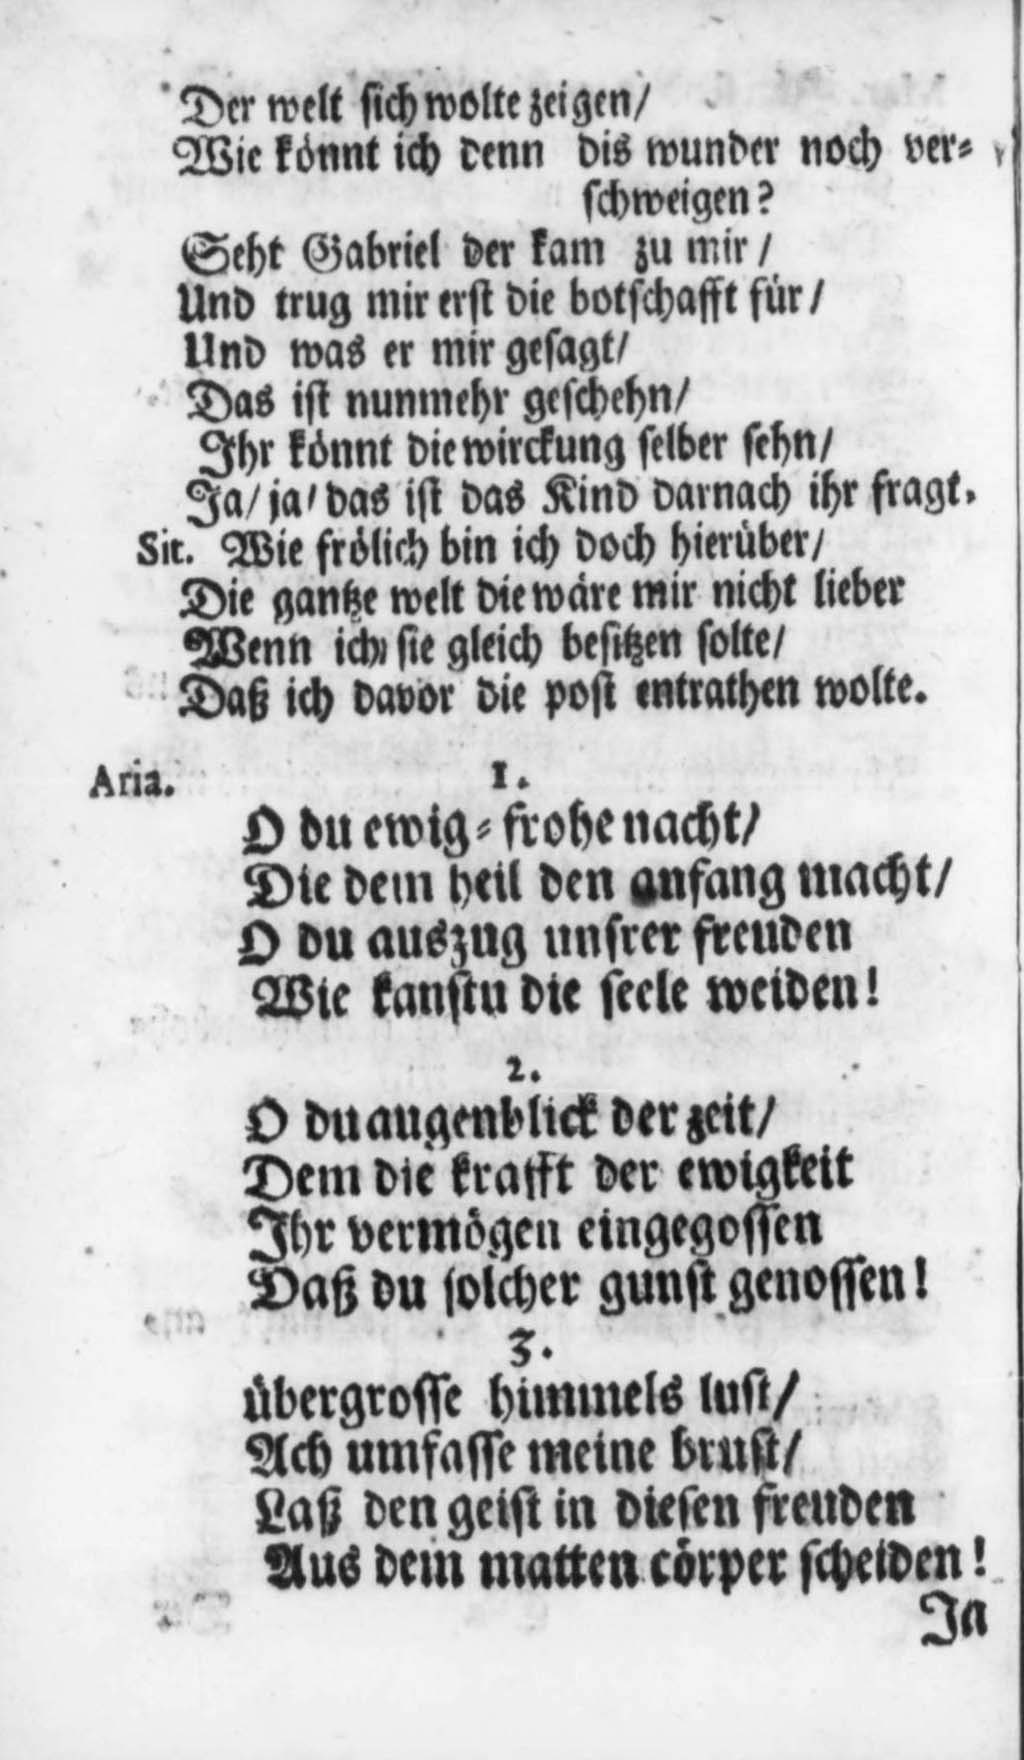 Der welt sich wolte zeigen/
Wie könnt ich denn dis wunder noch ver-
schweigen?
Seht Gabriel der kam zu mir/
Und trug mir erst die botschafft für/
Und was er mir gesagt/
Das ist nunmehr geschehn/
Ihr könnt die wirckung selber sehn/
Ja/ ja/ das ist das Kind darnach ihr fragt.
Sit. Wie frölich bin ich doch hierüber/
Die gantze welt die wäre mir nicht lieber
Wenn ich sie gleich besitzen solte/
Daß ich davor die post entrathen wolte.
Aria. 1.
O du ewig-frohe nacht/
Die dem heil den anfang macht/
O du auszug unsrer freuden
Wie kanstu die seele weiden!
2.
O du augenblick der zeit/
Dem die krafft der ewigkeit
Ihr vermögen eingegossen
Daß du solcher gunst genossen!
3.
übergrosse himmels lust/
Ach umfasse meine brust/
Laß den geist in diesen freuden
Aus dem matten cörper scheiden!
Ja